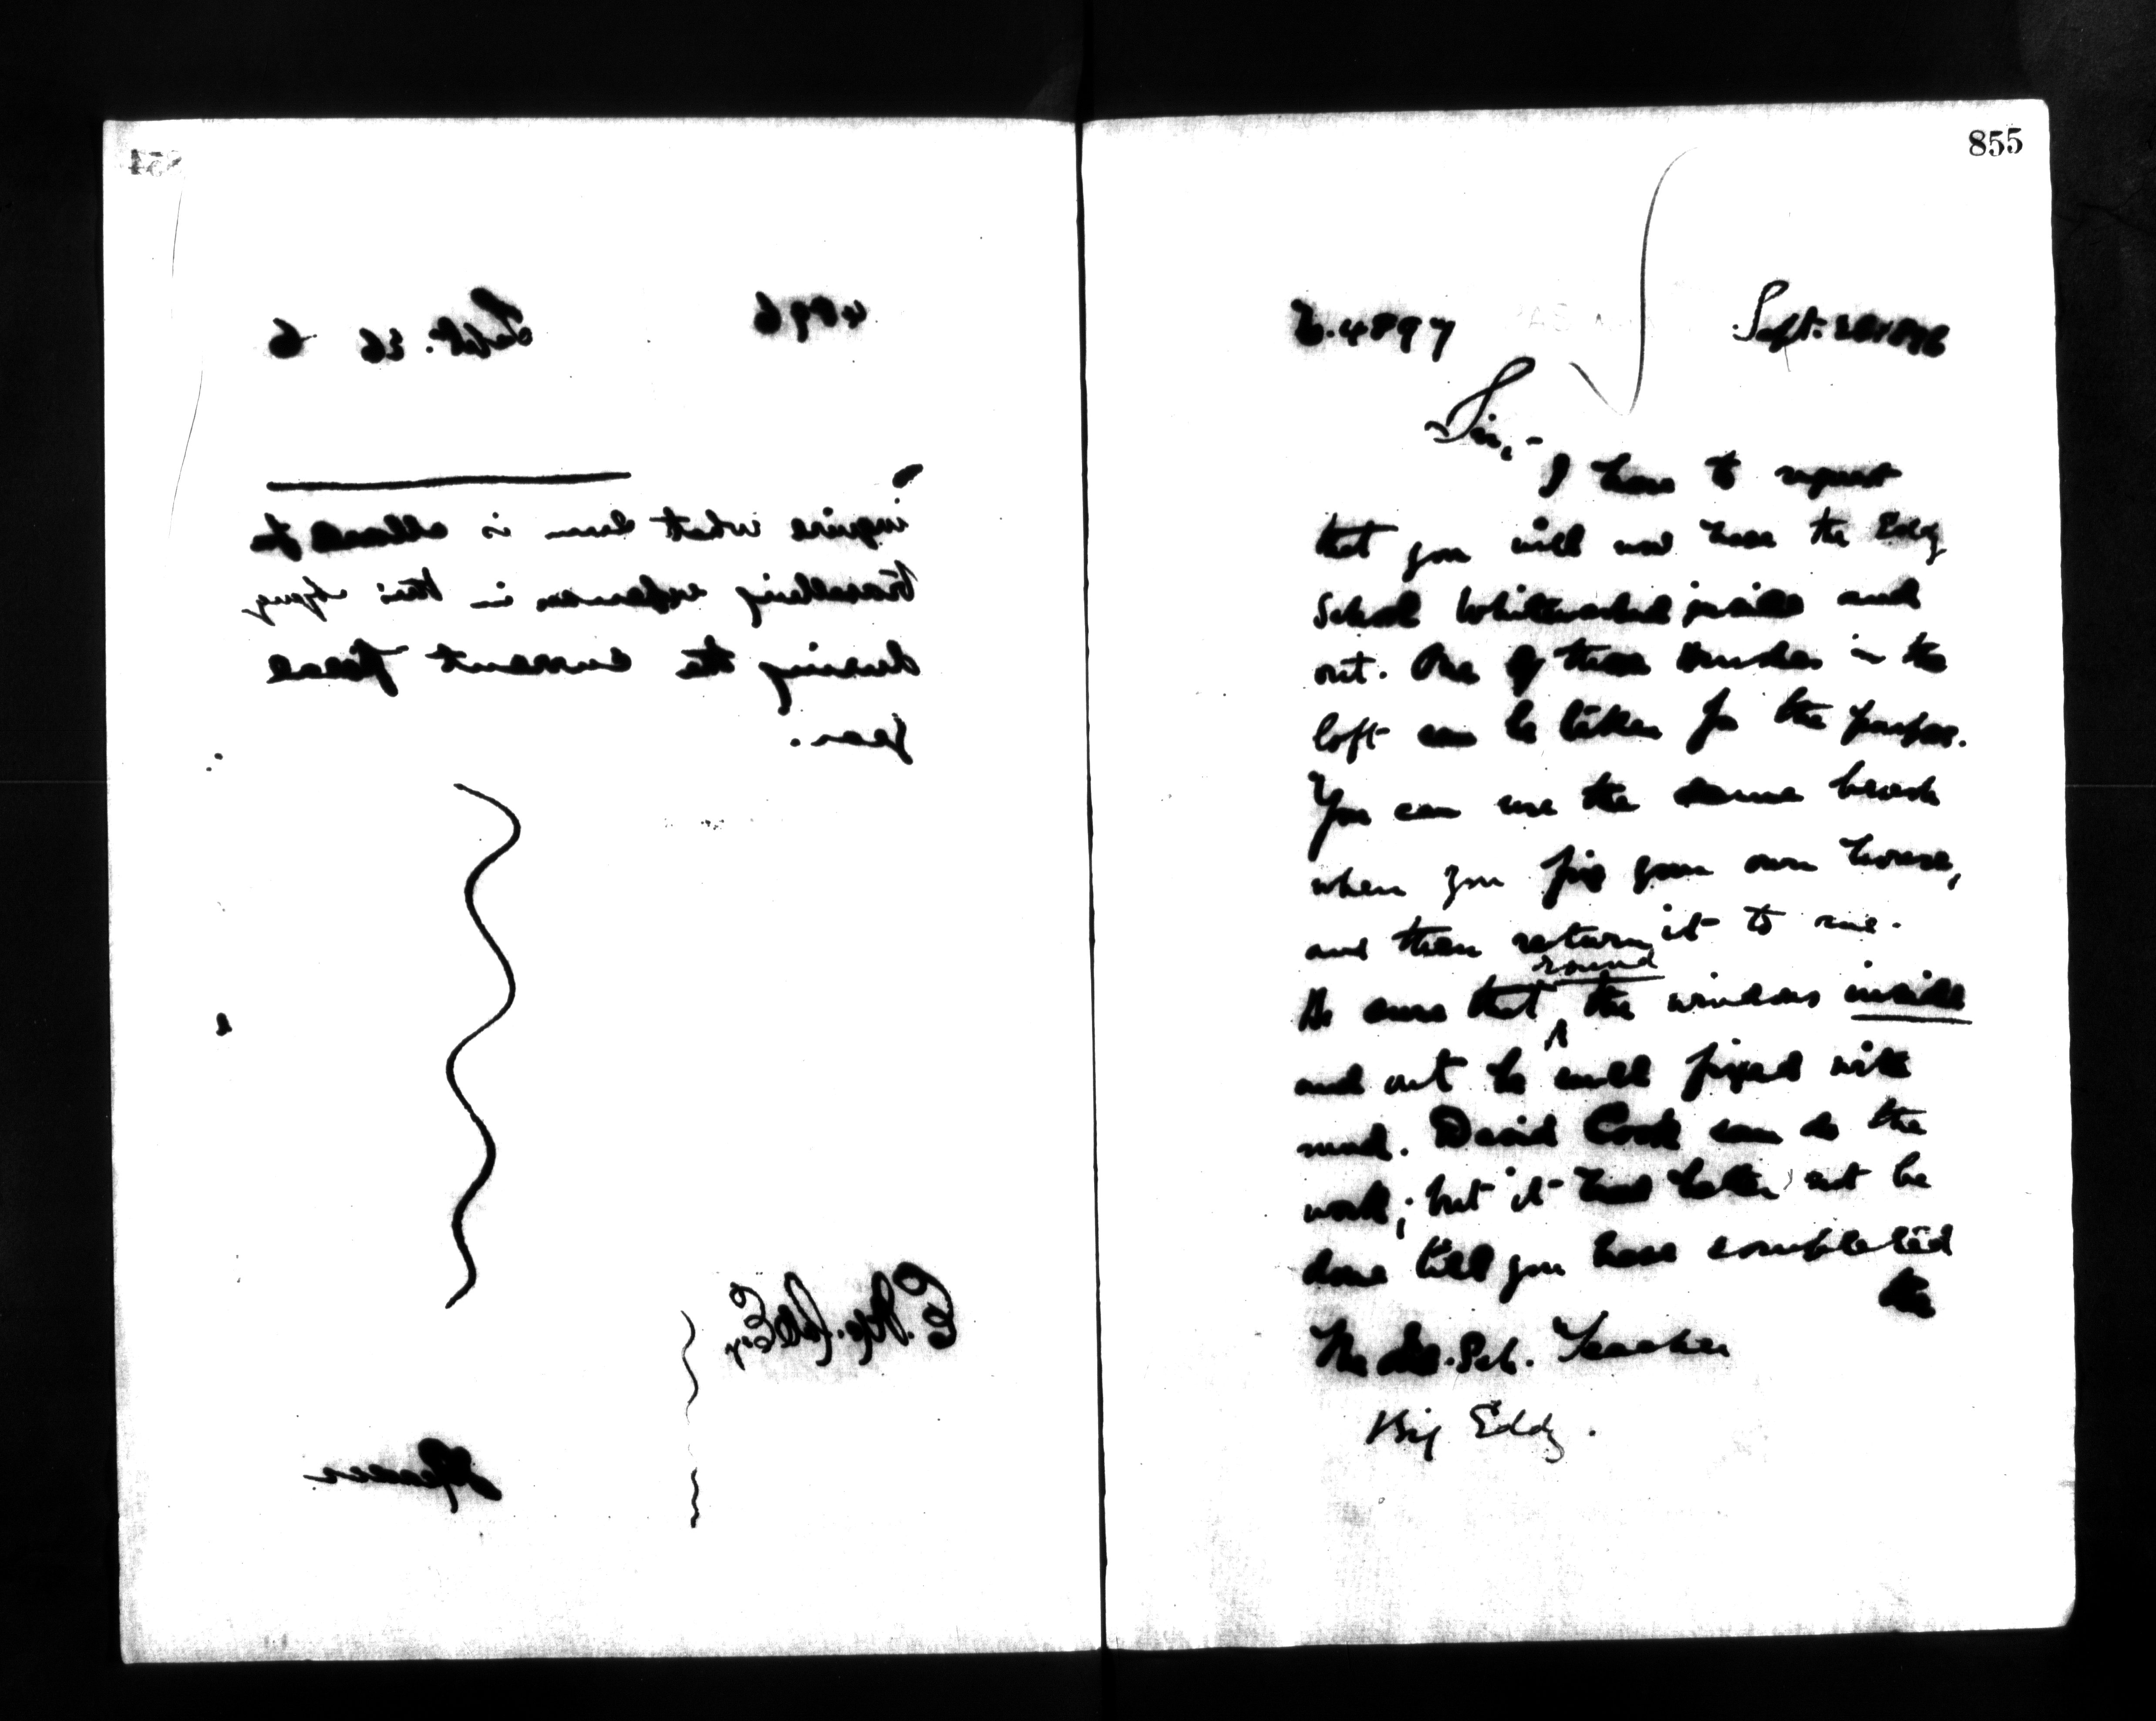 854
4896 Sept. 26 6
inquire what sum is allowed for
travelling expenses in this agency
during the current fiscal
year.
855
4897 Sept. 1896
Sir,-
I have to request
that you will now have the Eddy
School whitewashed inside and
out. One of those brushes in the
loft can be taken for the purpose.
You can use the same brush
when you fix your own house,
and then return it to me.
Be sure that round the windows inside
and out be well fixed with
mud. David Cook can do the
work; but it had better not be
done till you have completed
the
The Sch. Teacher
Big Eddy.